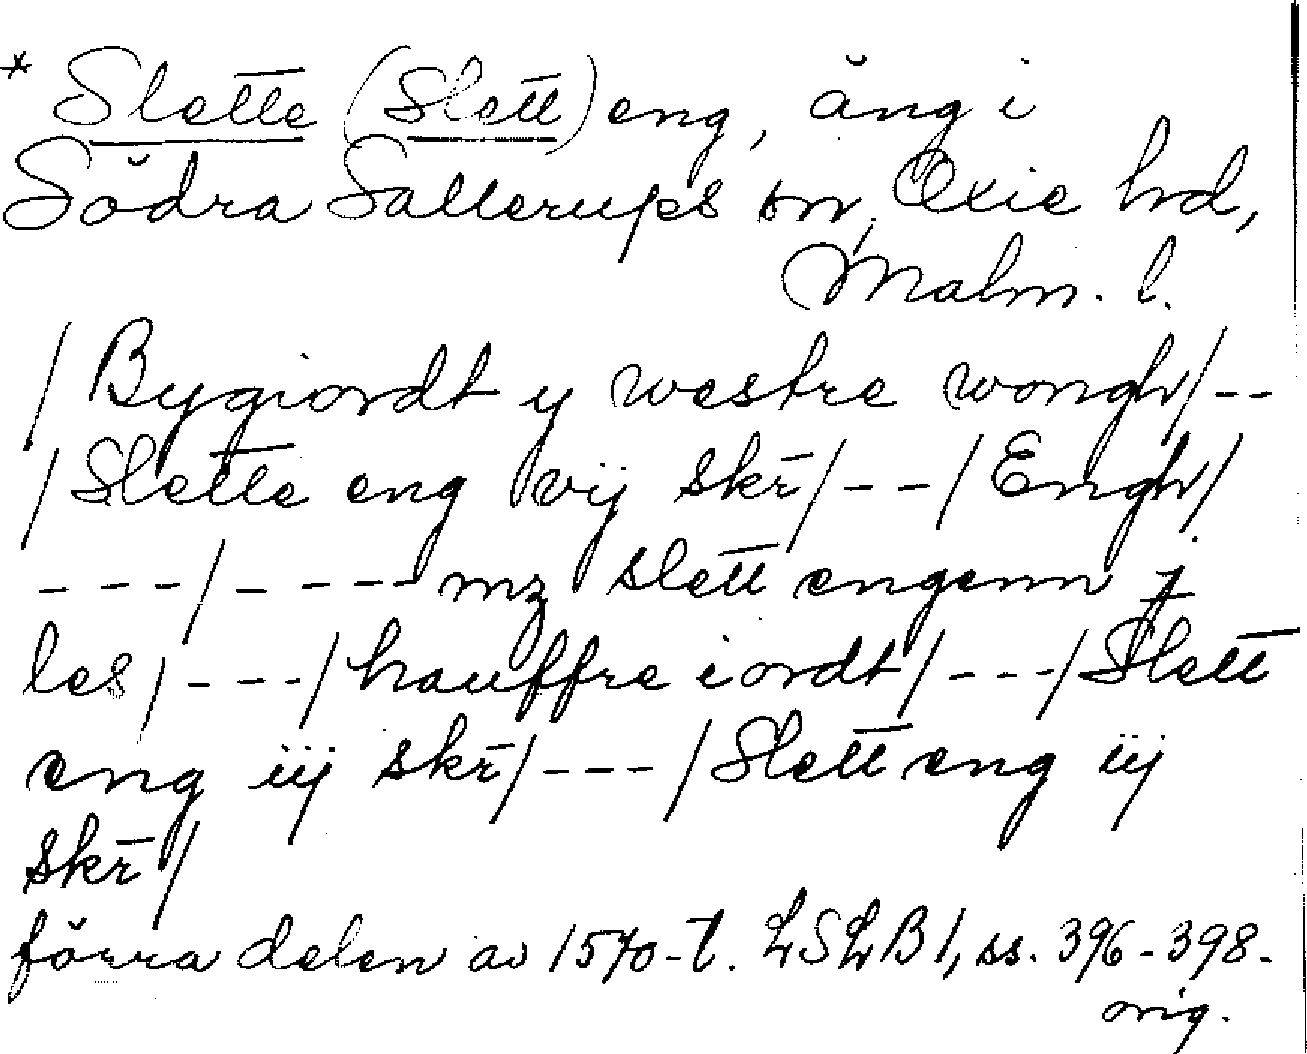 * Slette (Slett) eng, äng i
Södra Sallerups sn, Oxie hd,
Malm. l.
/ Bygiordt y westre wongh/--
/Slette eng vij skr̄/--/Engh/
---/-----mz slett engenn j
les/---/hauffre iordt/---/Slett
eng iij skr̄/---/Slett eng iij
skr̄/
förra delen av 1570-t. LSLB1, ss. 396-398.
orig.